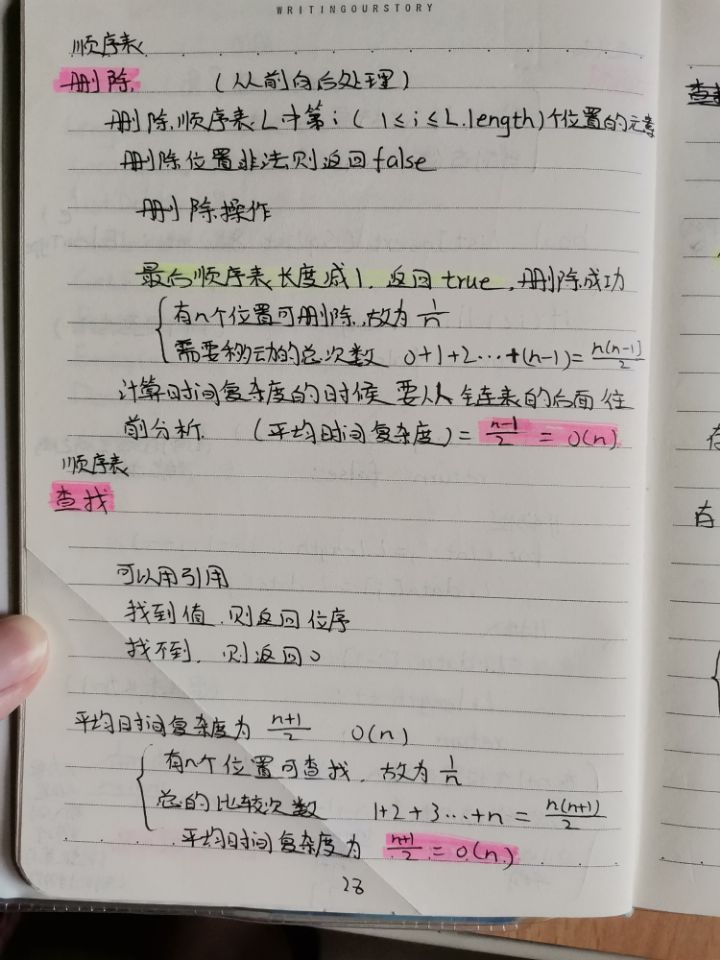 WRITINGOURSTORY
顺序表
删除 （从前向后处理）
删除顺序表L中第i（1≤i≤L.length）个位置的元素
删除位置非法则返回false
删除操作
最后顺序表长度减1，返回true，删除成功
有n个位置可删除，故为 1/n
需要移动的总次数 0+1+2…+(n-1)=n(n-1)/2
计算时间复杂度的时候要从链表的后面往
前分析 （平均时间复杂度）= n-1/2 = O(n)
顺序表
查找
可以用引用
找到值，则返回位序
找不到，则返回0
平均时间复杂度为 n+1/2 O(n)
有n个位置可查找，故为 1/n
总的比较次数 1+2+3…+n = n(n+1)/2
平均时间复杂度为 n+1/2 = O(n)
28